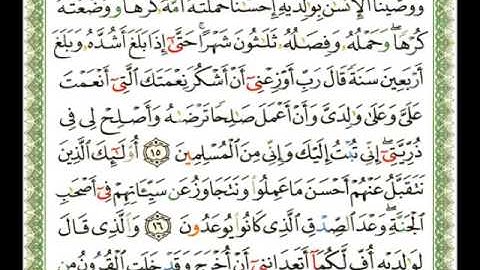 ووصينا الإنسن بولديه إحسنا حملته أمه كرها ووضعته
كُرْهًا ۖ وَحَمْلُهُۥ وَفِصَٰلُهُۥ ثَلَٰثُونَ شَهْرًا ۚ حَتَّىٰٓ إِذَا بَلَغَ أَشُدَّهُۥ وَبَلَغَ
أَرْبَعِينَ سَنَةً قَالَ رَبِّ أَوْزِعْنِىٓ أَنْ أَشْكُرَ نِعْمَتَكَ ٱلَّتِىٓ أَنْعَمْتَ
عَلَىَّ وَعَلَىٰ وَٰلِدَىَّ وَأَنْ أَعْمَلَ صَٰلِحًا تَرْضَىٰهُ وَأَصْلِحْ لِى فِى
ذُرِّيَّتِىٓ ۖ إِنِّى تُبْتُ إِلَيْكَ وَإِنِّى مِنَ ٱلْمُسْلِمِينَ ١٥ أُو۟لَٰٓئِكَ ٱلَّذِينَ
نَتَقَبَّلُ عَنْهُمْ أَحْسَنَ مَا عَمِلُوا۟ وَنَتَجَاوَزُ عَن سَيِّـَٔاتِهِمْ فِىٓ أَصْحَٰبِ
ٱلْجَنَّةِ ۖ وَعْدَ ٱلصِّدْقِ ٱلَّذِى كَانُوا۟ يُوعَدُونَ ١٦ وَٱلَّذِى قَالَ
لِوَٰلِدَيْهِ أُفٍّ لَّكُمَآ أَتَعِدَانِنِىٓ أَنْ أُخْرَجَ وَقَدْ خَلَتِ ٱلْقُرُونُ مِن